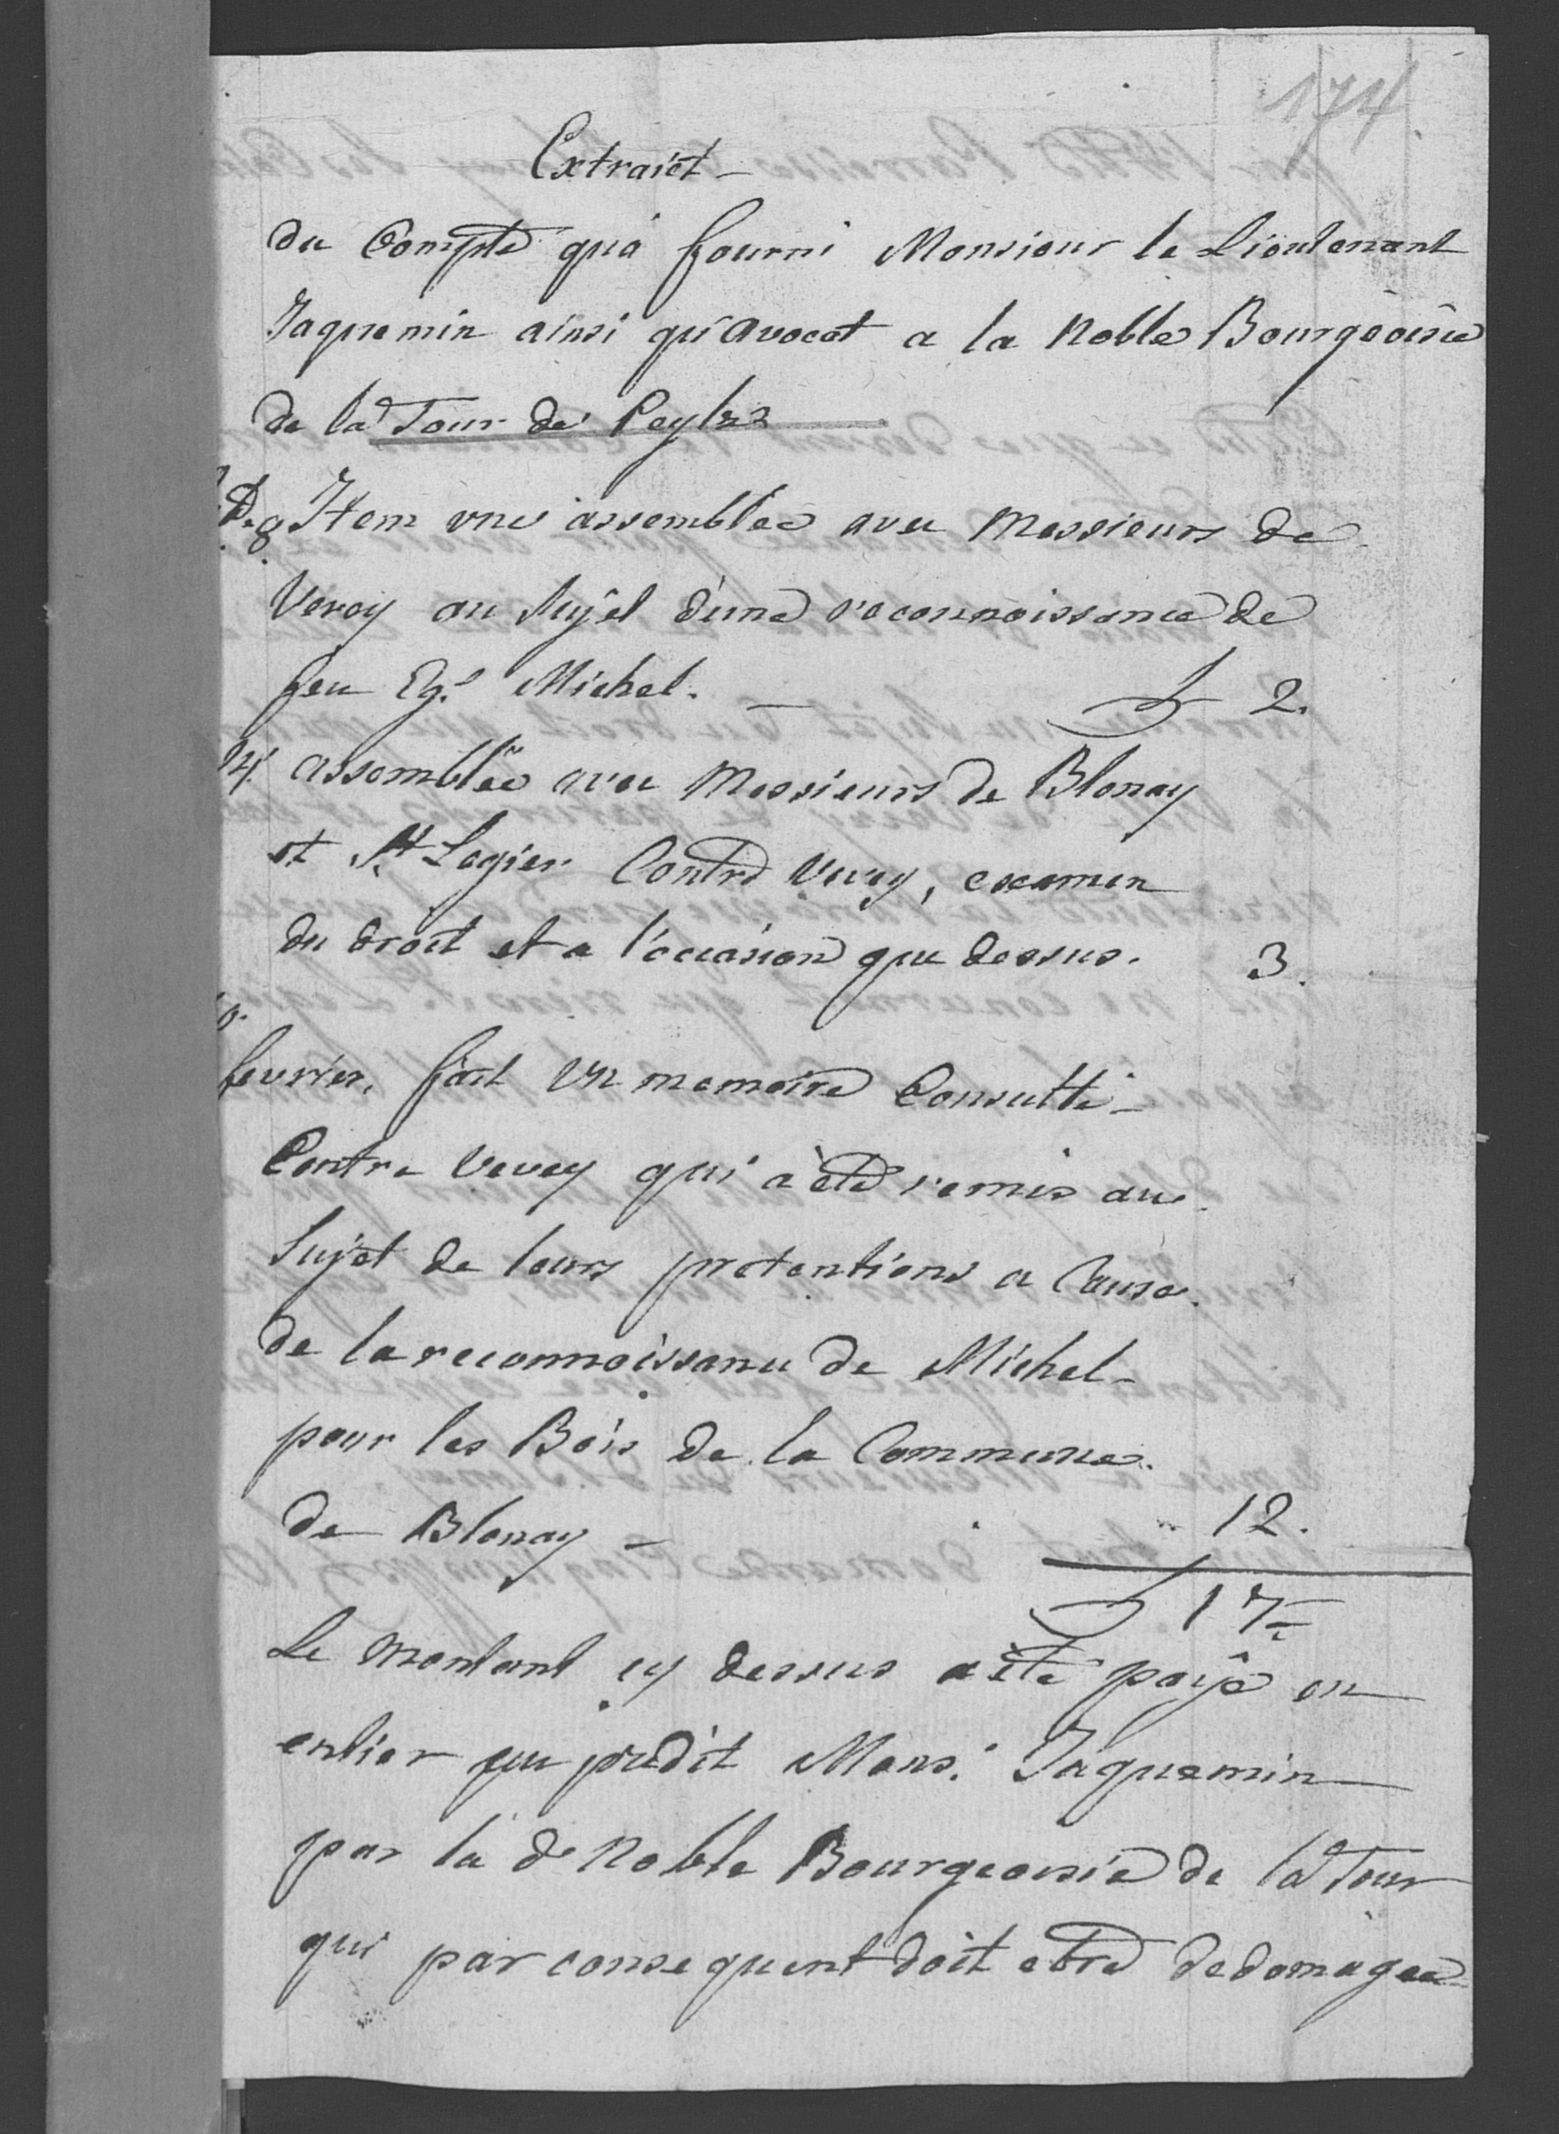 174
Extraict
du Compte qu'a fourni Monsieur le Lieutenant
Jaquemin ainsi qu'avocat a la Noble Bourgeoisie
de la Tour de Peylz
8 Item une assemblée avec Messieurs de
Vevey au sujêt d'une reconnoissance de
feu Eg.e Michel. — 2.
14. assemblée avec Messieurs de Blonay
et St Legier Contre Vevey, examen
du droit et a l'occasion que dessus. 3.
fevrier, fait un memoire Consulté
Contre Vevey qui a été remis au
Sujet de leurs pretentions a Cause
de la reconnoissance de Michel
pour les Bois de la Commune
de Blonay — 12.
17
Le montant cy dessus a été payé en
entier au predit Mons.r Jaquemin
par la de Noble Bourgeoisie de la Tour
qui par consequent doit etre dedomagée